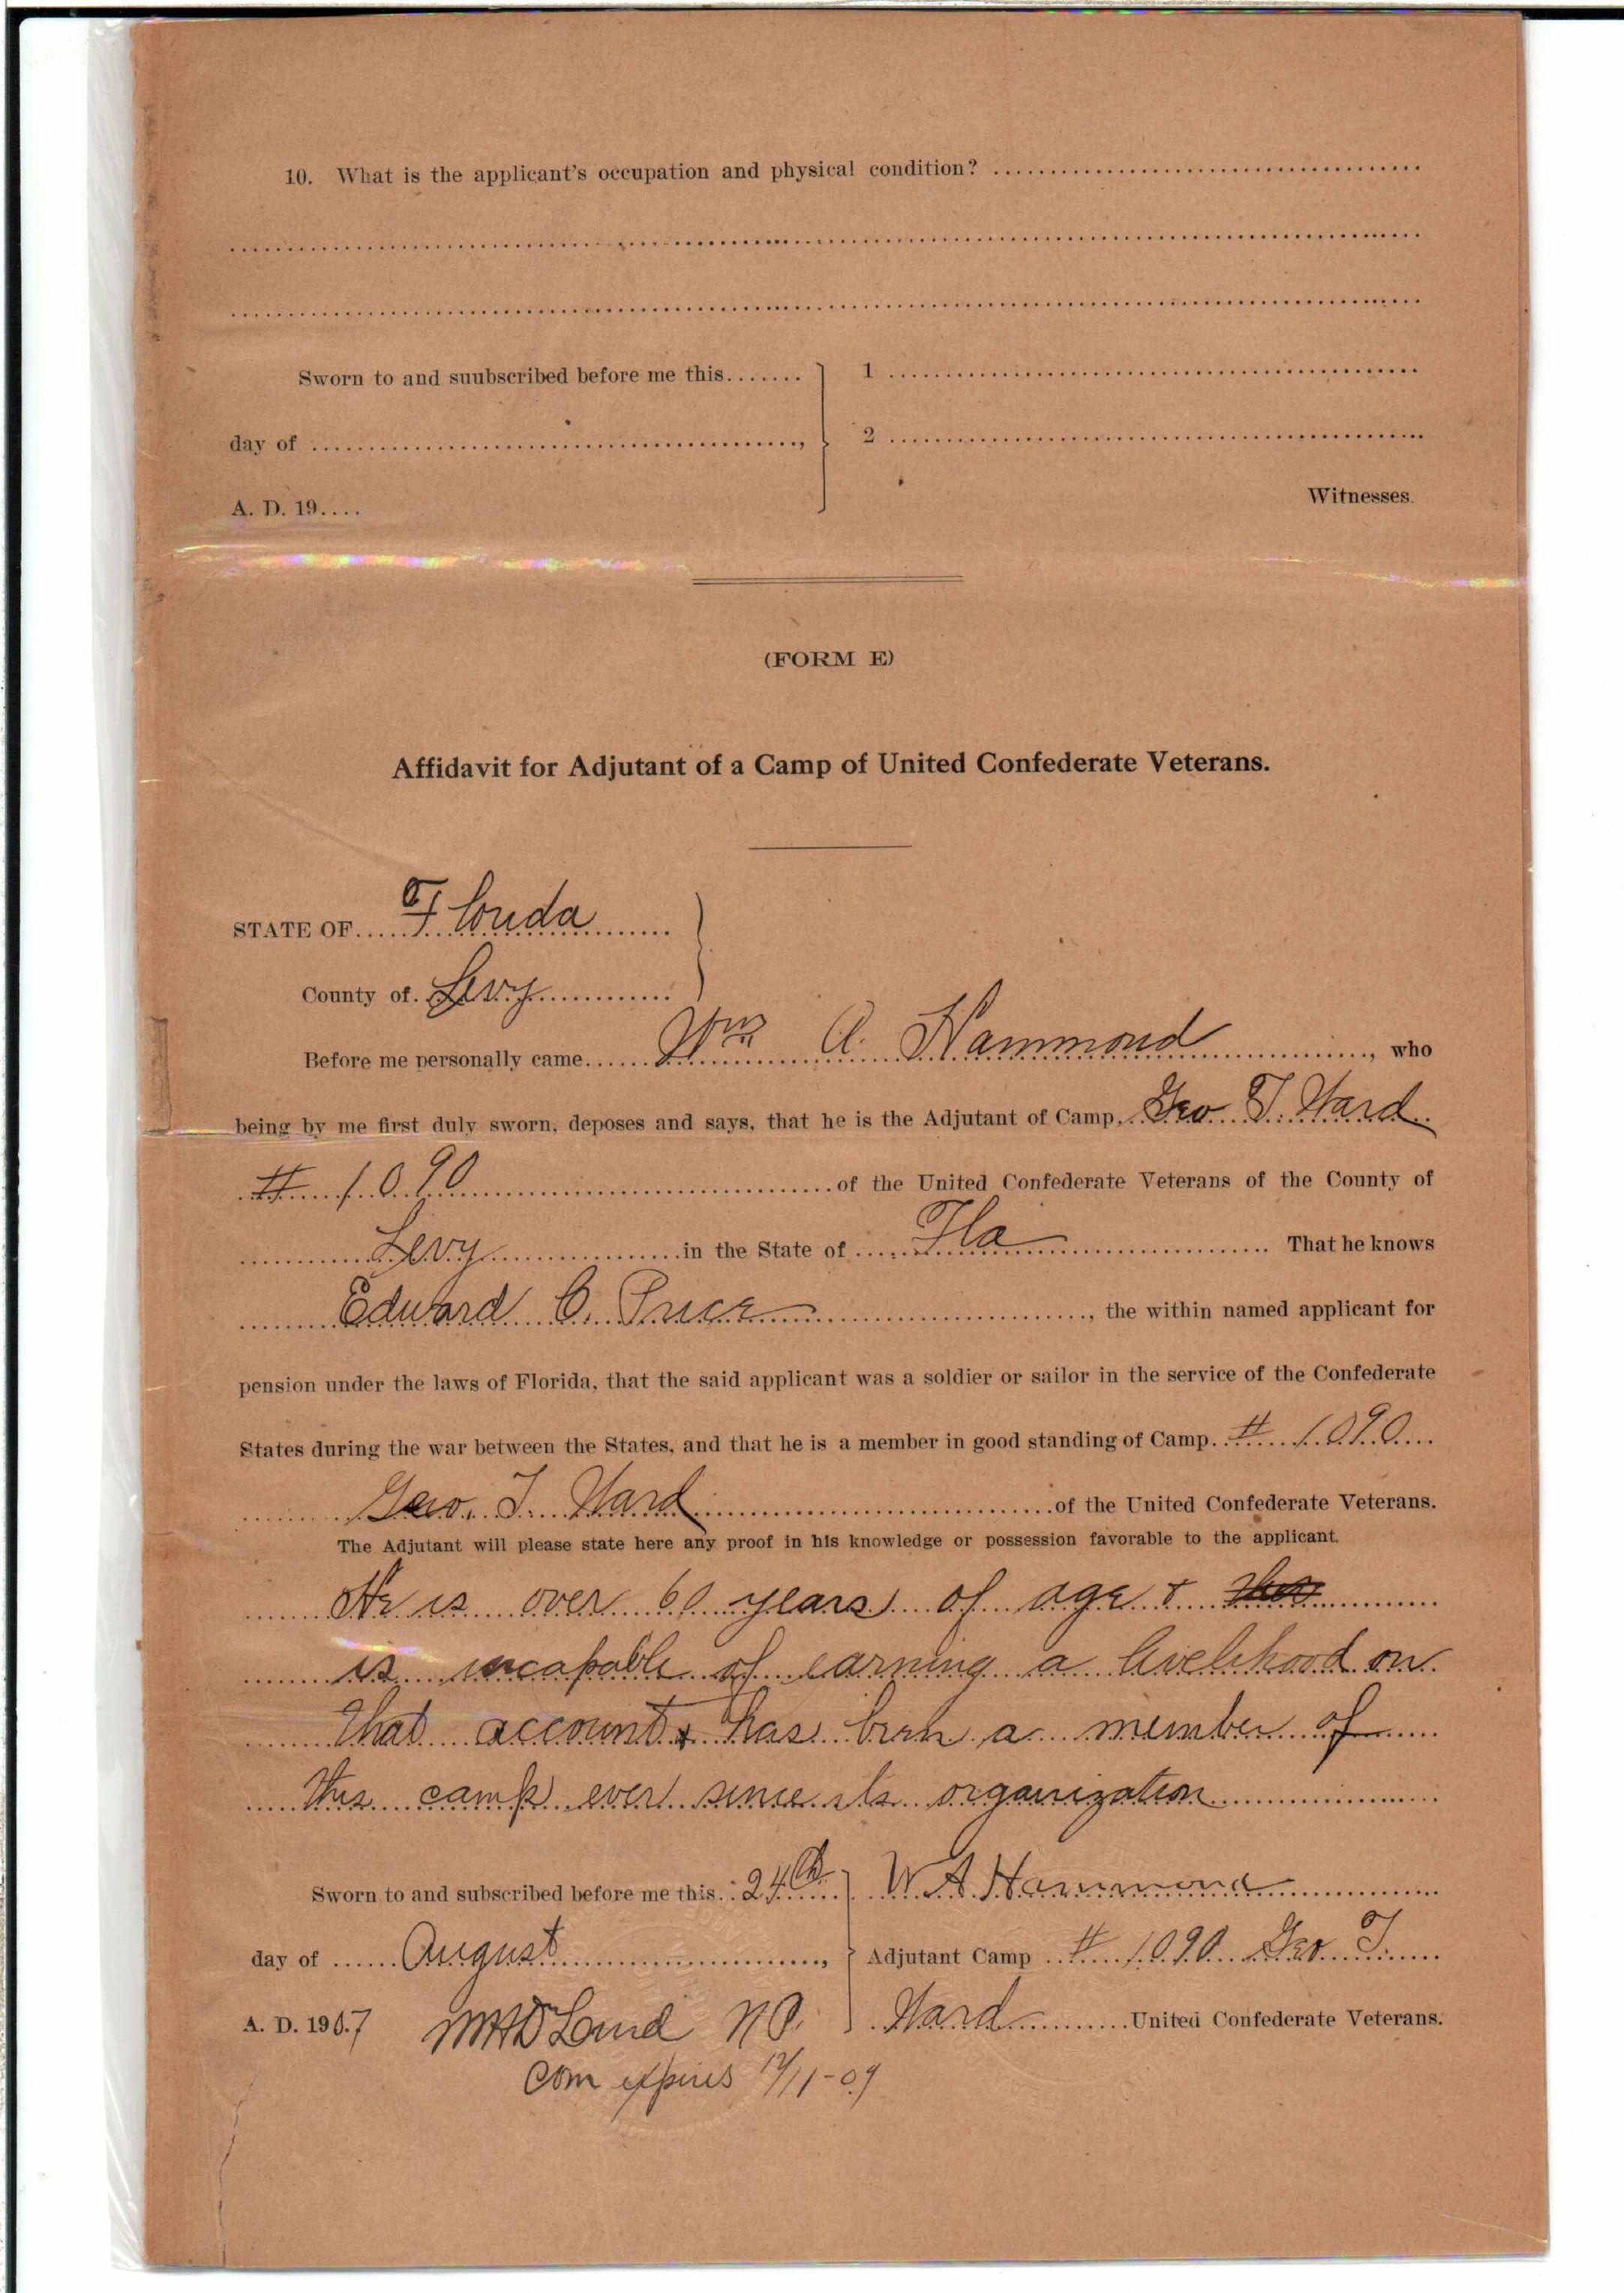 10. What is the applicant's occupation and physical condition?
Sworn to and suubscribed before me this....... 1
day of ......, 2
A. D. 19.... Witnesses.
(FORM E)
Affidavit for Adjutant of a Camp of United Confederate Veterans.
STATE OF Florida
County of Levy
Before me personally came Wm A. Hammond, who
being by me first duly sworn, deposes and says, that he is the Adjutant of Camp Geo T. Ward
# 1090 of the United Confederate Veterans of the County of
Levy in the State of Fla That he knows
Edward C. Price, the within named applicant for
pension under the laws of Florida, that the said applicant was a soldier or sailor in the service of the Confederate
States during the war between the States, and that he is a member in good standing of Camp # 1090
Geo. T. Ward of the United Confederate Veterans.
The Adjutant will please state here any proof in his knowledge or possession favorable to the applicant.
He is over 60 years of age &
is incapable of earning a livelihood on
that account & has been a member of
this camp ever since its organization
Sworn to and subscribed before me this 24th W A Hammond
day of August, Adjutant Camp # 1090 Geo T.
A. D. 1907 N P. Ward United Confederate Veterans.
Com expires 12/11-09